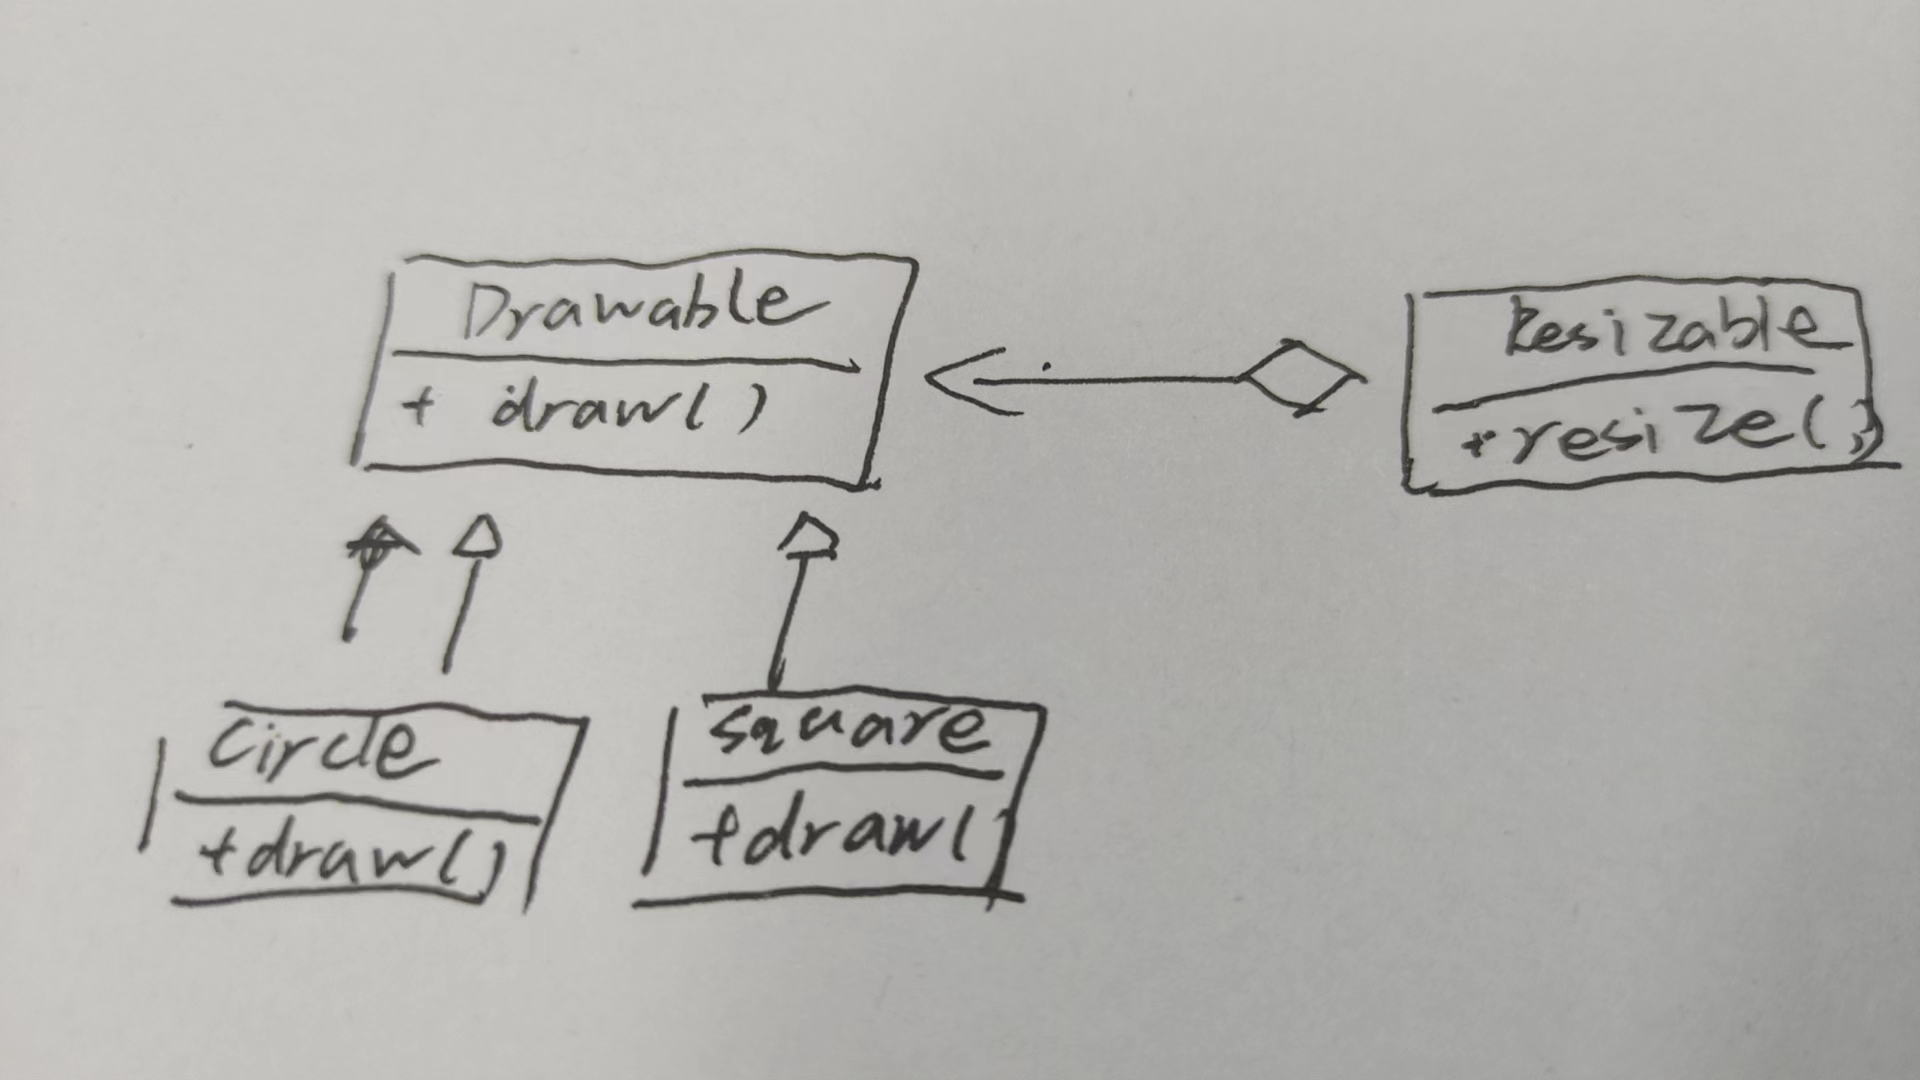 Drawable
+ draw()
Resizable
+resize()
circle
+draw()
square
+draw()